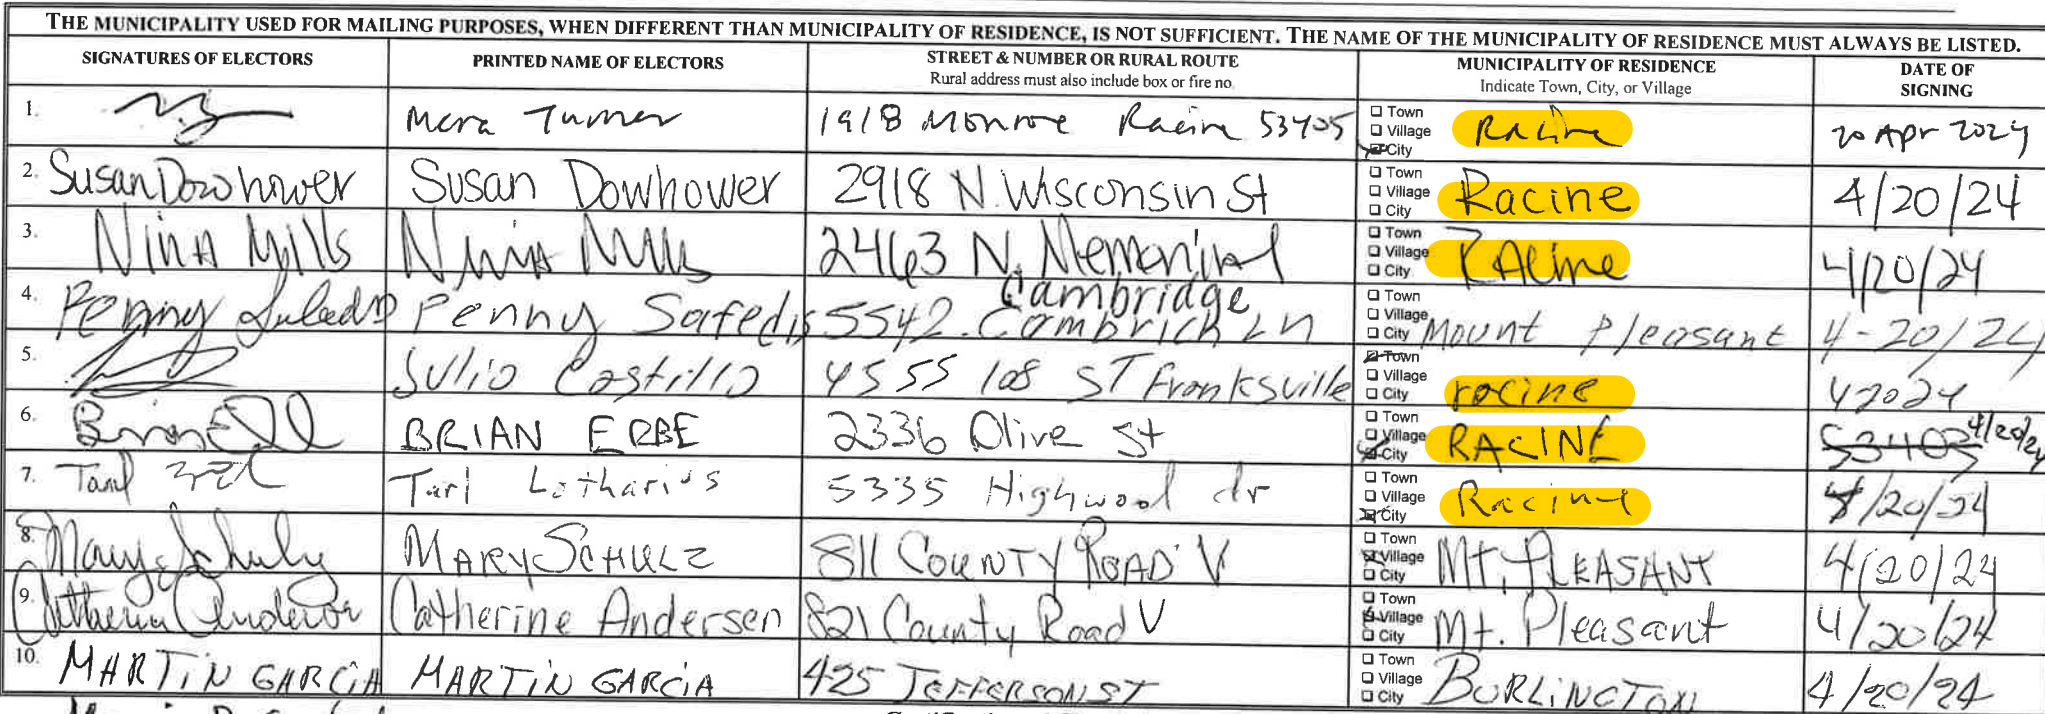 THE MUNICIPALITY USED FOR MAILING PURPOSES, WHEN DIFFERENT THAN MUNICIPALITY OF RESIDENCE, IS NOT SUFFICIENT. THE NAME OF THE MUNICIPALITY OF RESIDENCE MUST ALWAYS BE LISTED.
SIGNATURES OF ELECTORS PRINTED NAME OF ELECTORS STREET & NUMBER OR RURAL ROUTE MUNICIPALITY OF RESIDENCE DATE OF SIGNING
Rural address must also include box or fire no. Indicate Town, City, or Village
1. Turner 1918 Monroe Racine 53405 Town Village City Racine 20 Apr 2024
2. Susan Dowhower Susan Dowhower 2918 N. Wisconsin St Town Village City Racine 4/20/24
3. Nina Mills Nina Mills 2463 N. Memorial Town Village City Racine 4/20/24
4. Penny Penny Safedis 5542 Cambridge Cambrick Ln Town Village City Mount Pleasant 4-20/24
5. Julio Castillo 4555 108 ST Franksville Town Village City racine 42024
6. BRIAN ERBE 2336 Olive St Town Village City RACINE 53403 4/20/24
7. Tarl Lotharius 5335 Highwood dr Town Village City Racine 4/20/24
8. Mary Schulz MARY SCHULZ 811 COUNTY ROAD V Town Village City Mt. PLEASANT 4/20/24
9. Catherine Andersen Catherine Andersen 821 County Road V Town Village City Mt. Pleasant 4/20/24
10. MARTIN GARCIA MARTIN GARCIA 425 JEFFERSON ST Town Village City BURLINGTON 4/20/24